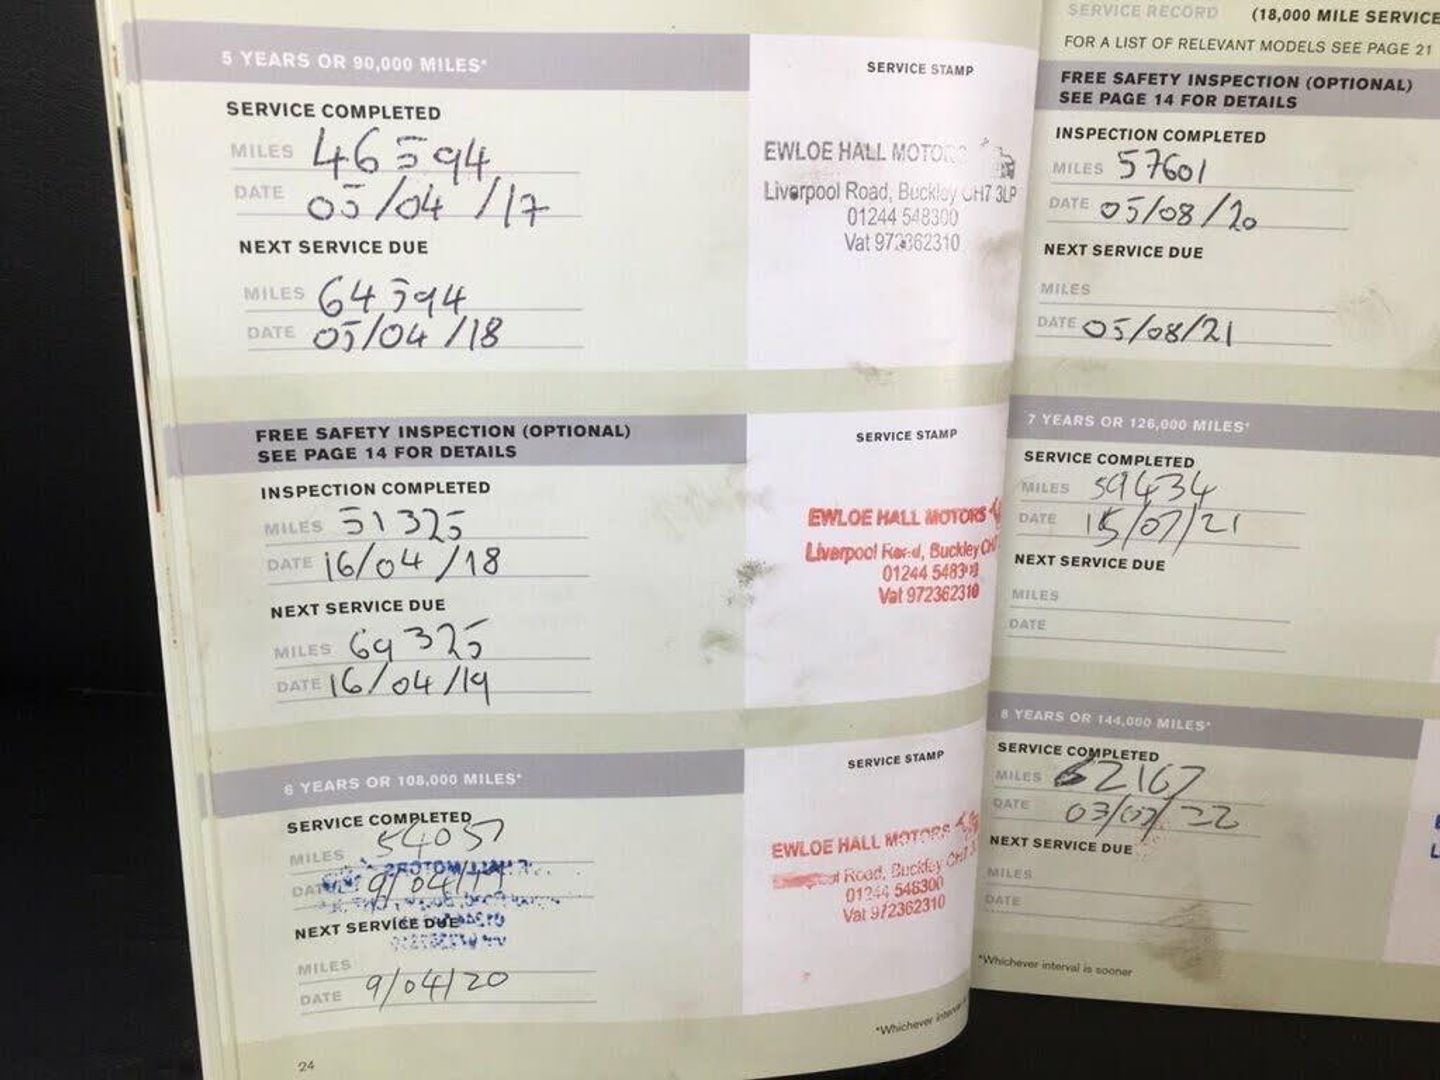 5 YEARS OR 90,000 MILES*
SERVICE COMPLETED
MILES 46594
DATE 05/04/17
NEXT SERVICE DUE
MILES 64594
DATE 05/04/18
SERVICE STAMP
EWLOE HALL MOTORS
Liverpool Road, Buckley CH7 3LP
01244 548300
Vat 972362310
FREE SAFETY INSPECTION (OPTIONAL)
SEE PAGE 14 FOR DETAILS
INSPECTION COMPLETED
MILES 51325
DATE 16/04/18
NEXT SERVICE DUE
MILES 69325
DATE 16/04/19
SERVICE STAMP
EWLOE HALL MOTORS
Liverpool Road, Buckley CH7
01244 548300
Vat 972362310
6 YEARS OR 108,000 MILES*
SERVICE COMPLETED
MILES 54057
DATE 9/04/19
NEXT SERVICE DUE
MILES
DATE 9/04/20
SERVICE STAMP
EWLOE HALL MOTORS
Road, Buckley CH7
01244 548300
Vat 972362310
*Whichever
24
SERVICE RECORD (18,000 MILE SERVICE
FOR A LIST OF RELEVANT MODELS SEE PAGE 21
FREE SAFETY INSPECTION (OPTIONAL)
SEE PAGE 14 FOR DETAILS
INSPECTION COMPLETED
MILES 57601
DATE 05/08/20
NEXT SERVICE DUE
MILES
DATE 05/08/21
7 YEARS OR 126,000 MILES*
SERVICE COMPLETED
MILES 59434
DATE 15/07/21
NEXT SERVICE DUE
MILES
DATE
8 YEARS OR 144,000 MILES*
SERVICE COMPLETED
MILES 62167
DATE 03/03/22
NEXT SERVICE DUE
MILES
DATE
*Whichever interval is sooner